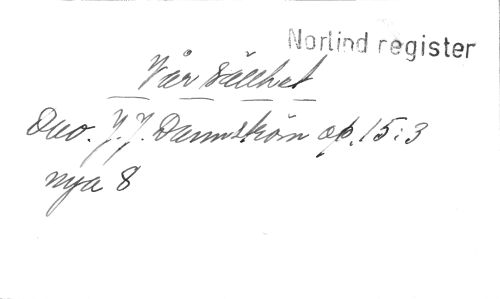 Norlind register
Vår sällhet
Duo. J. J. Dannström op. 15:3
nya 8